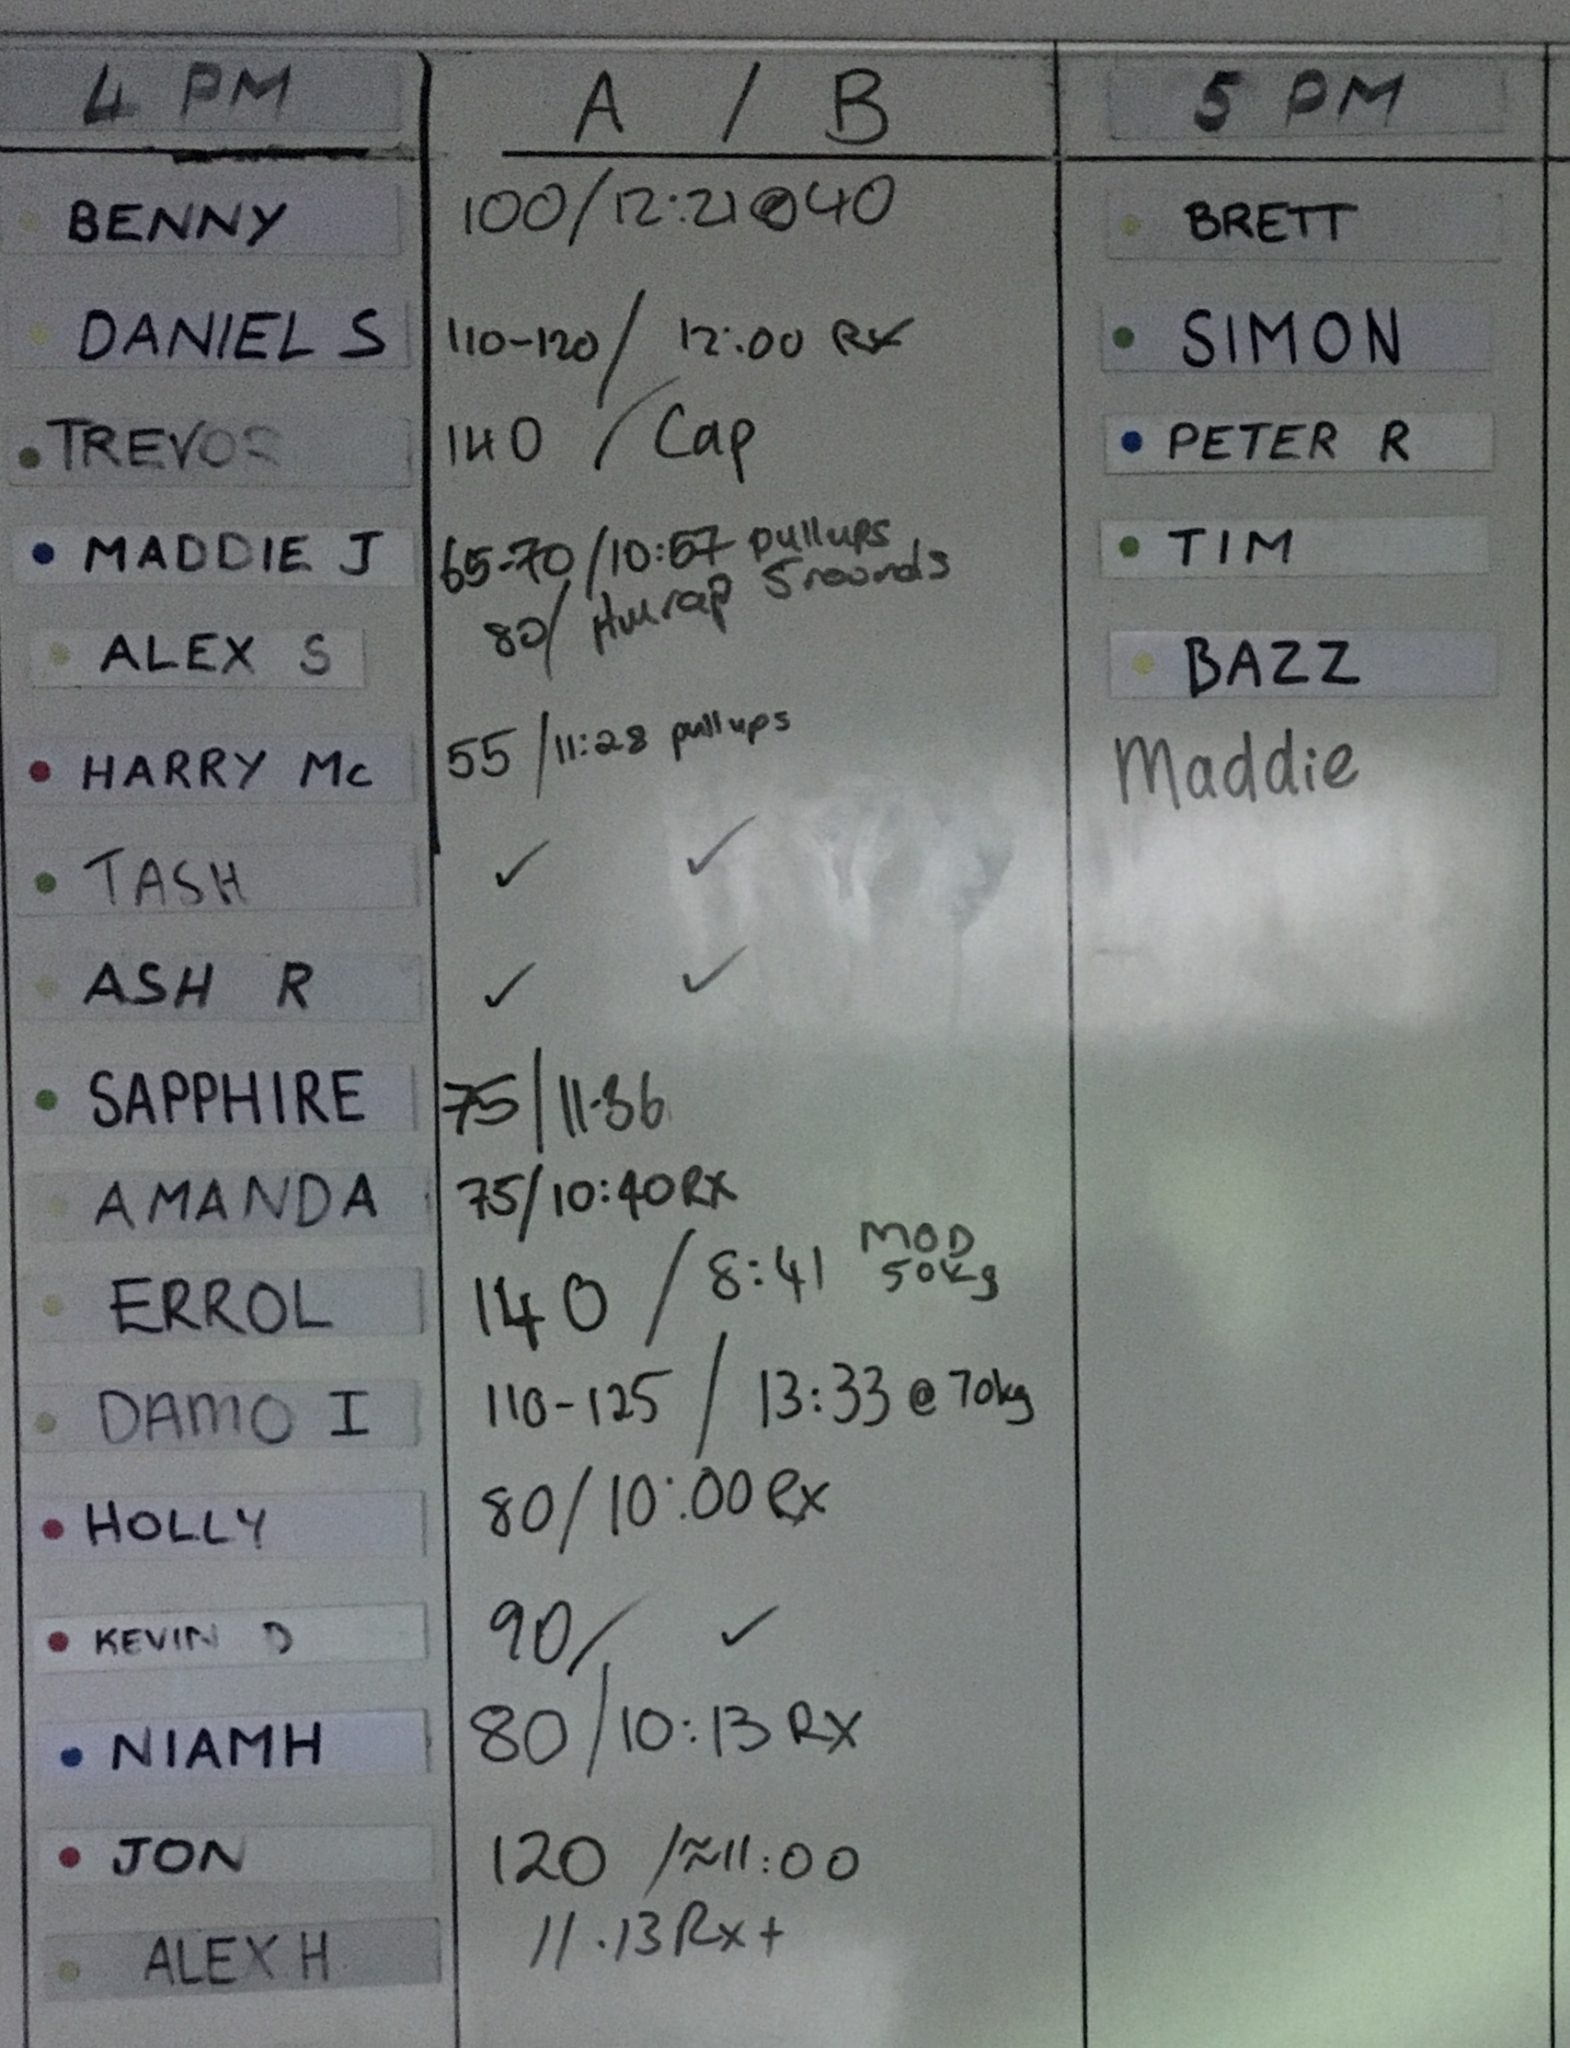 4 PM A / B 5 PM
BENNY 100/12:21@40 BRETT
DANIEL S 110-120/ 12:00 RX SIMON
TREVOR 140 / Cap PETER R
MADDIE J 65-70/10:57 pullups TIM
ALEX S 80/ Amrap 5 rounds BAZZ
HARRY Mc 55/11:28 pullups Maddie
TASH ✓ ✓
ASH R ✓ ✓
SAPPHIRE 75/11.36
AMANDA 75/10:40 RX
ERROL 140 / 8:41 MOD 50kg
DAMO I 110-125 / 13:33 @ 70kg
HOLLY 80/10:00 Rx
KEVIN D 90/ ✓
NIAMH 80/10:13 RX
JON 120 /≈11:00
ALEX H 11.13 Rx+